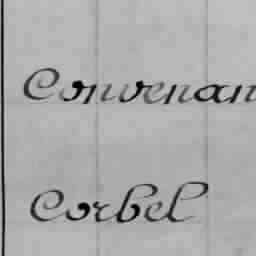 Convenan
Corbel